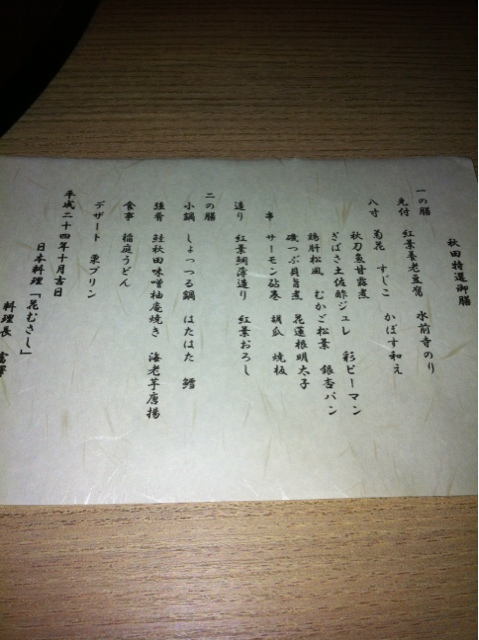 秋田特選御膳
一の膳
先付 紅葉養老豆腐 水前寺のり
八寸 菊花 すじこ かぼす和え
秋刀魚甘露煮 彩ピーマン
ぎばさ土佐酢ジュレ 銀杏パン
鶏肝松風 むかご松葉
磯つぶ貝旨煮 花蓮根明太子
串 サーモン砧巻 胡瓜 焼板
造り 紅葉鯛薄造り 紅葉おろし
二の膳
小鍋 しょっつる鍋 はたはた 鱈
強肴 鮭秋田味噌柚庵焼き 海老芋唐揚
食事 稲庭うどん
デザート 栗プリン
平成二十四年十月吉日
日本料理「花むさし」
料理長